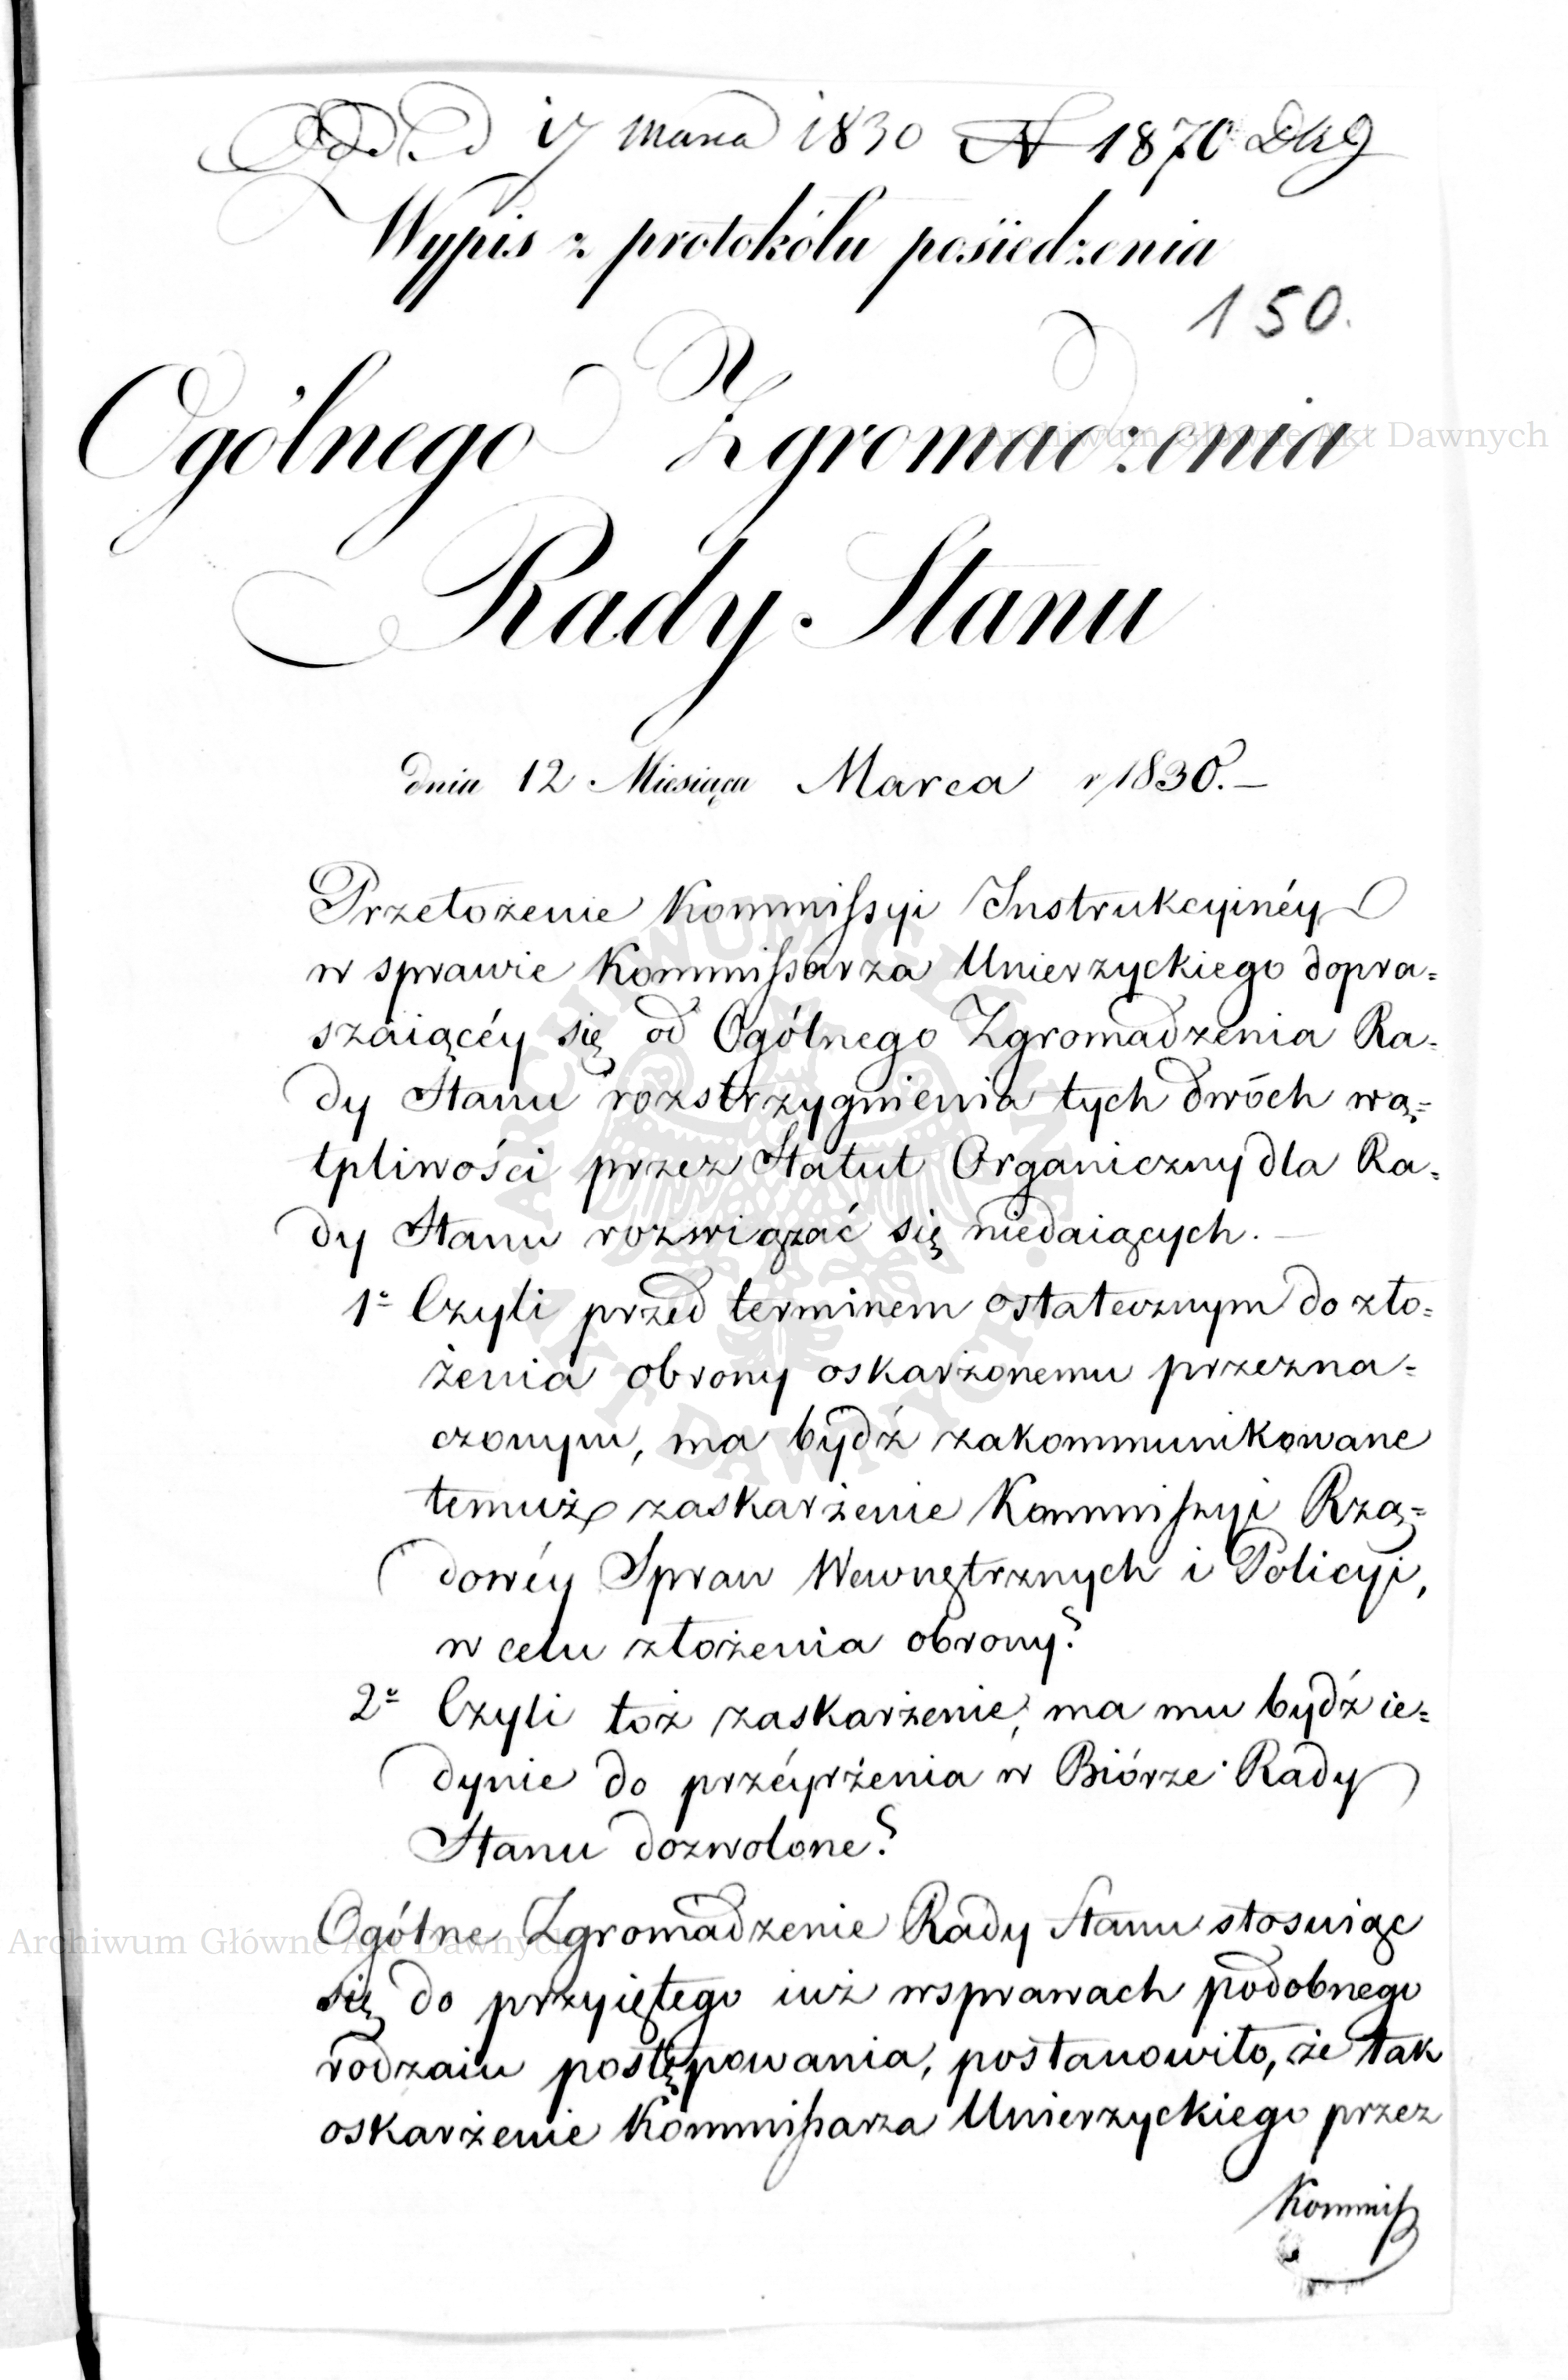 17 Marca 1830 N 1870
Wypis z protokółu posiedzenia
150.
Ogólnego Zgromadzenia
Archiwum Główne Akt Dawnych
Rady Stanu
dnia 12 Miesiąca Marca r 1830.–
Przełożenie Kommissyi Instrukcyinéy
w sprawie Kommissarza Unierzyckiego dopra=
szaiącéy się od Ogólnego Zgromadzenia Ra=
dy Stanu rozstrzygnienia tych dwóch wą=
tpliwości przez Statut Organiczny dla Ra=
dy Stanu rozwiązać się niedaiących. –
1º Czyli przed terminem ostatecznym do zło=
żenia obrony oskarżonemu przezna=
czonym, ma bydź zakommunikowane
temuż zaskarżenie Kommissyi Rzą=
dowéy Spraw Wewnętrznych i Policyi,
w celu złożenia obrony?
2º Czyli toż zaskarżenie, ma mu bydź ie=
dynie do przéyrżenia w Biórze Rady
Stanu dozwolone?
Ogólne Zgromadzenie Rady Stanu stosuiąc
Archiwum Główne Akt Dawnych
się do przyiętego iuż wsprawach podobnego
rodzaiu postępowania, postanowiło, że tak
oskarżenie Kommissarza Unierzyckiego przez
Kommiss
ARCHIWUM GŁÓWNE AKT DAWNYCH